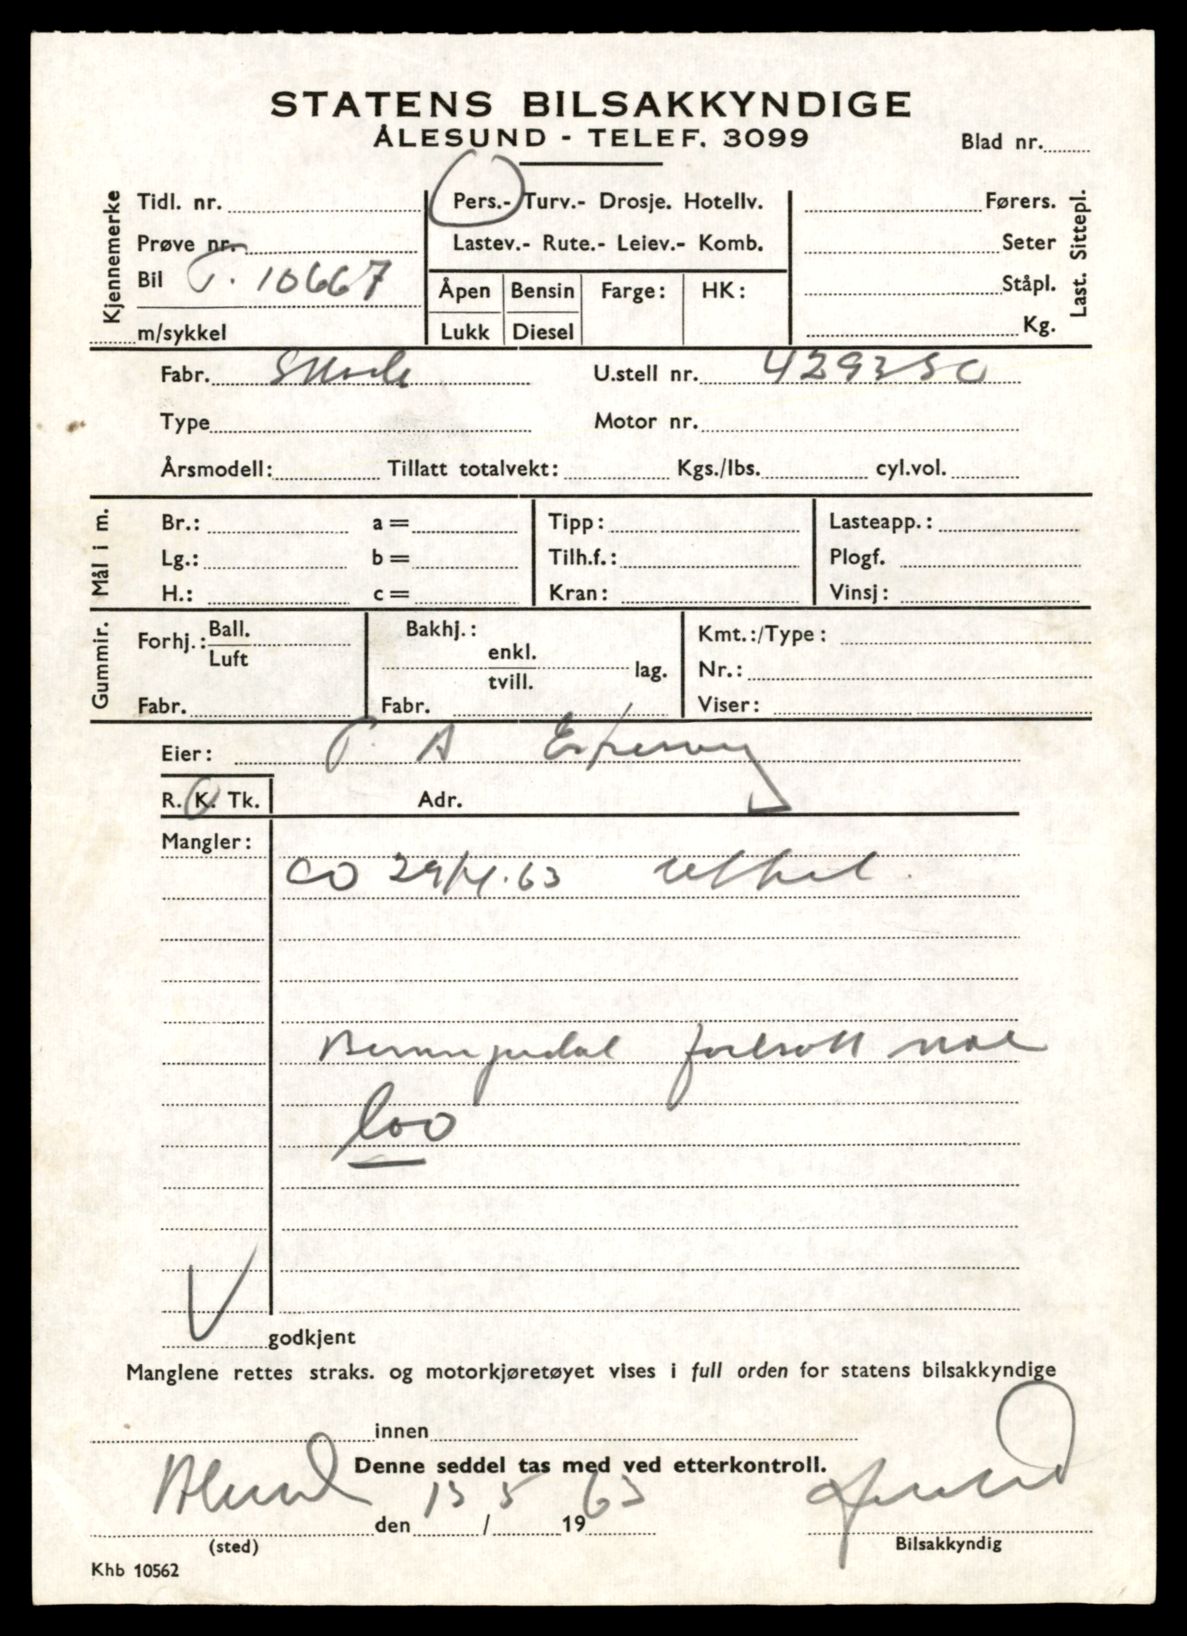 STATENS BILSAKKYNDIGE
ÅLESUND - TELEF. 3099
Blad nr.
Kjennemerke
Tidl. nr.
Prøve nr.
Bil T. 10667
m/sykkel
Pers.- Turv.- Drosje. Hotellv.
Lastev.- Rute.- Leiev.- Komb.
Åpen Bensin Farge: HK:
Lukk Diesel
Førers.
Seter
Ståpl.
Kg.
Last. Sittepl.
Fabr. U.stell nr. 429350
Type Motor nr.
Årsmodell: Tillatt totalvekt: Kgs./lbs. cyl.vol.
Mål i m.
Br.: a = Tipp: Lasteapp.:
Lg.: b = Tilh.f.: Plogf.
H.: c = Kran: Vinsj:
Gummir.
Forhj.: Ball.
Luft
Fabr.
Bakhj.:
enkl.
tvill. lag.
Fabr.
Kmt.:/Type:
Nr.:
Viser:
Eier: P. A
R. K. Tk. Adr.
Mangler:
CO 29/4.63
godkjent
Manglene rettes straks. og motorkjøretøyet vises i full orden for statens bilsakkyndige
innen
Denne seddel tas med ved etterkontroll.
Ålesund den 13 / 5 1963
(sted) Bilsakkyndig
Khb 10562